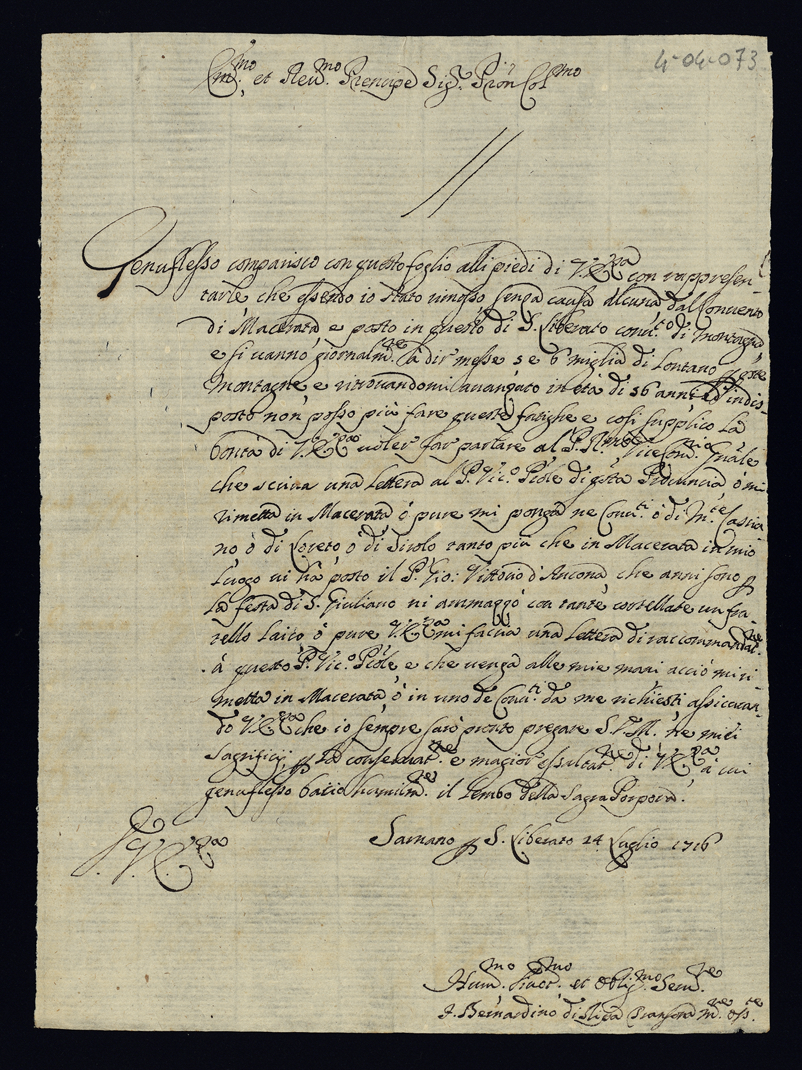 4-04-073
Em.mo et Rev.mo Prencipe Sig.r Prōn Col.mo
Genuflesso comparisco con questo foglio alli piedi di V. E. R.ma con rappresen-
tarle che essendo io stato rimosso senza causa alcuna dal Convento
di Macerata e posto in questo di S. Liberato conv.to di montagna
e si vanno giornalm.te a dir messe 5 e 6 miglia di lontano p queste
montagne e ritrovandomi avanzato in età di 56 anni ed indis-
posto non posso più fare queste fatighe e così supplico la
bontà di V. E. R.ma voler far parlare al P. R.mo Vice Com.rio Gn̄ale
che scriva una lettera al P. Vic.o P̄role di q̄sta Provincia ò mi
rimetta in Macerata ò pure mi ponga ne Conv.ti ò di M.te Cascia-
no ò di Loreto ò di Sirolo tanto più che in Macerata in mio
luogo vi hà posto il P. Gio: Vittorio d'Ancona che anni sono p
la festa di S. Giuliano vi ammazzò con tante cortellate un fra-
tello laico ò pure V. E. R.ma mi faccia una lettera di raccommandat.ne
à questo P. Vic.o P̄role e che venga alle mie mani acciò mi ri-
metta in Macerata ò in uno de Conv.ti da me richiesti assicuran-
do V. E. R.ma che io sempre sarò pronto pregare S. D. M. ne miei
sagrificij p la conservat.ne e magior essaltat.ne di V. E. R.ma à cui
genuflesso bacio humilm.te il lembo della Sagra Porpora.
Sarnano p S. Liberato 24 Luglio 1716
D. V. E. R.ma
Hum.mo Divot.mo et Oblig.mo Serv.re
F. Bernardino di M.re Oss.te